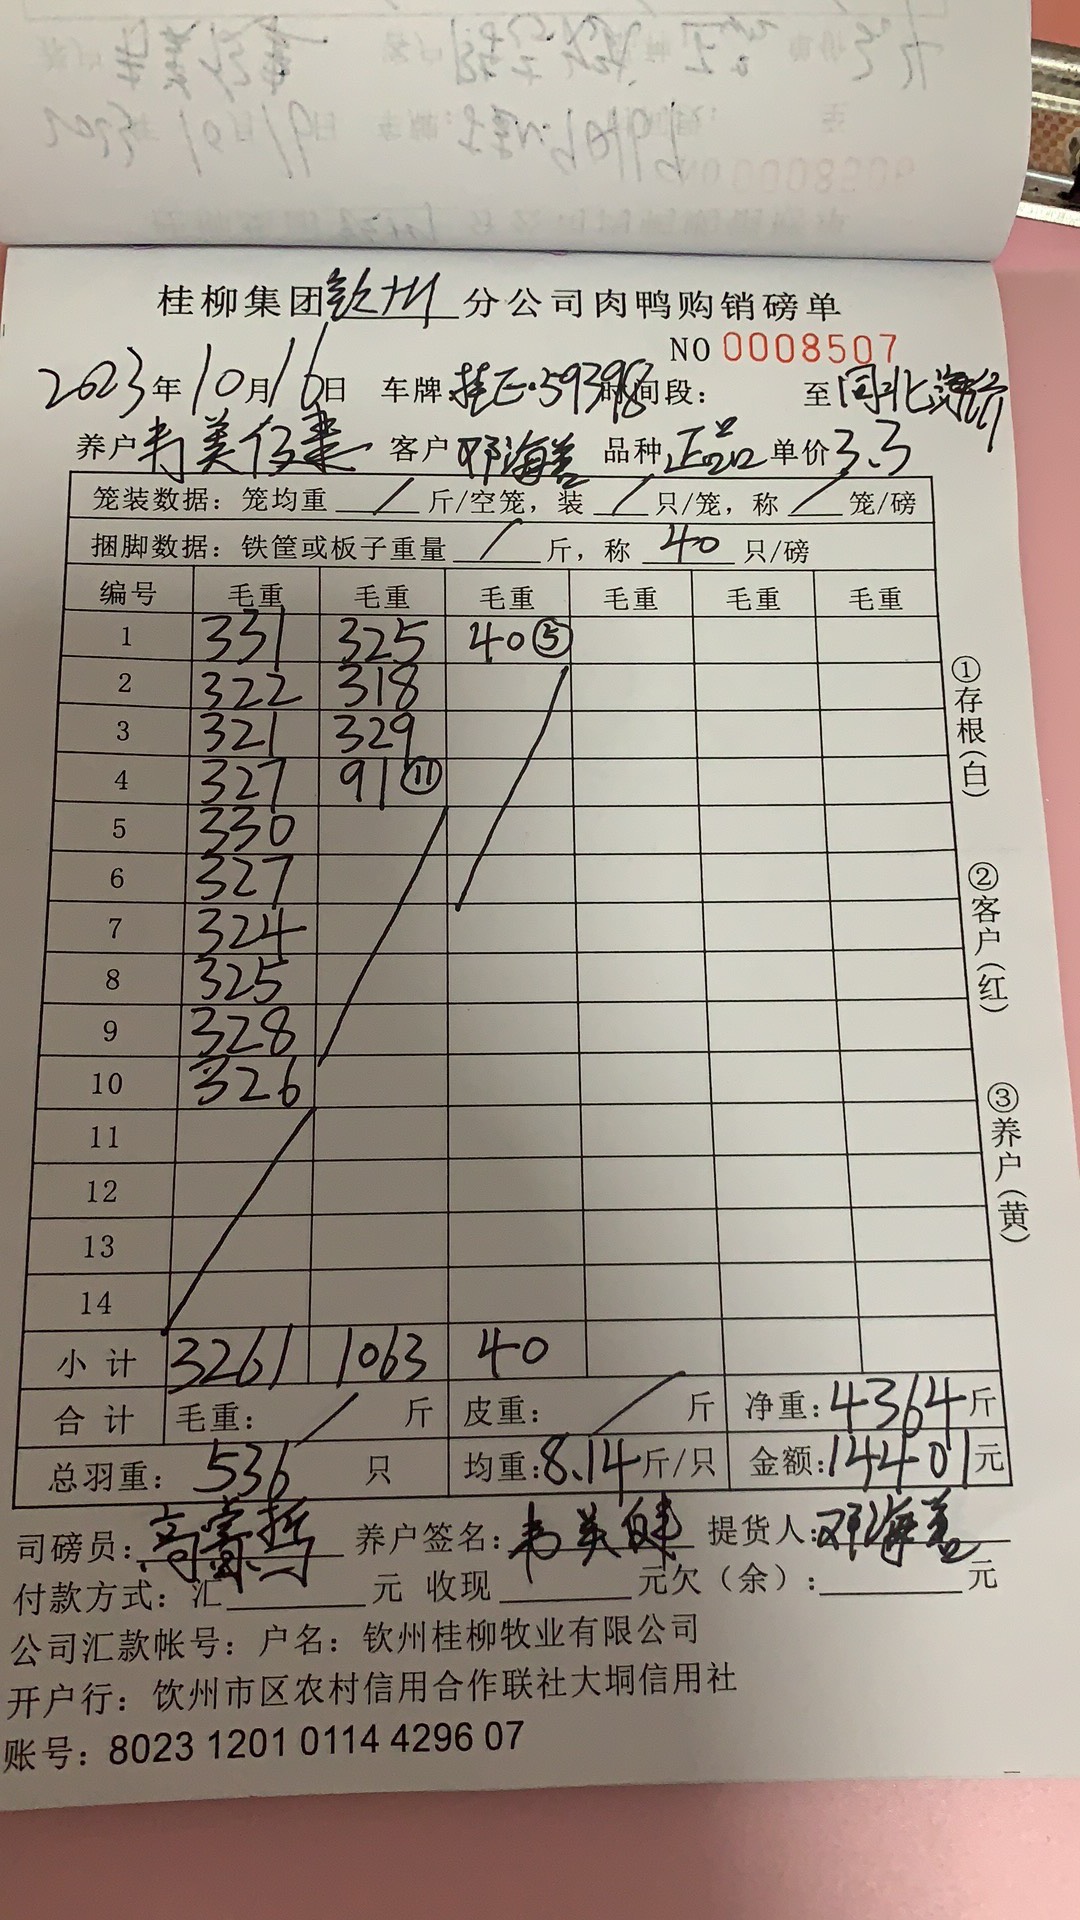 桂柳集团钦州分公司肉鸭购销磅单
NO 0008507
2023年10月16日 车牌:桂E·59398 时间段: 至
养户韦美 客户邓海益 品种正品 单价3.3
笼装数据：笼均重 / 斤/空笼，装 / 只/笼，称 / 笼/磅
捆脚数据：铁筐或板子重量 / 斤，称 40 只/磅
编号 毛重 毛重 毛重 毛重 毛重 毛重
1 331 325 40⑤
2 322 318
3 321 329
4 327 91⑪
5 330
6 327
7 324
8 325
9 328
10 326
11
12
13
14
小计 3261 1063 40
合计 毛重: / 斤 皮重: / 斤 净重:4364斤
总羽重: 536 只 均重:8.14斤/只 金额:14401元
①存根(白)
②客户(红)
③养户(黄)
司磅员: 养户签名:韦美 提货人:邓海益
付款方式：汇 元 收现 元欠（余）: 元
公司汇款帐号：户名：钦州桂柳牧业有限公司
开户行：饮州市区农村信用合作联社大垌信用社
账号：8023 1201 0114 4296 07